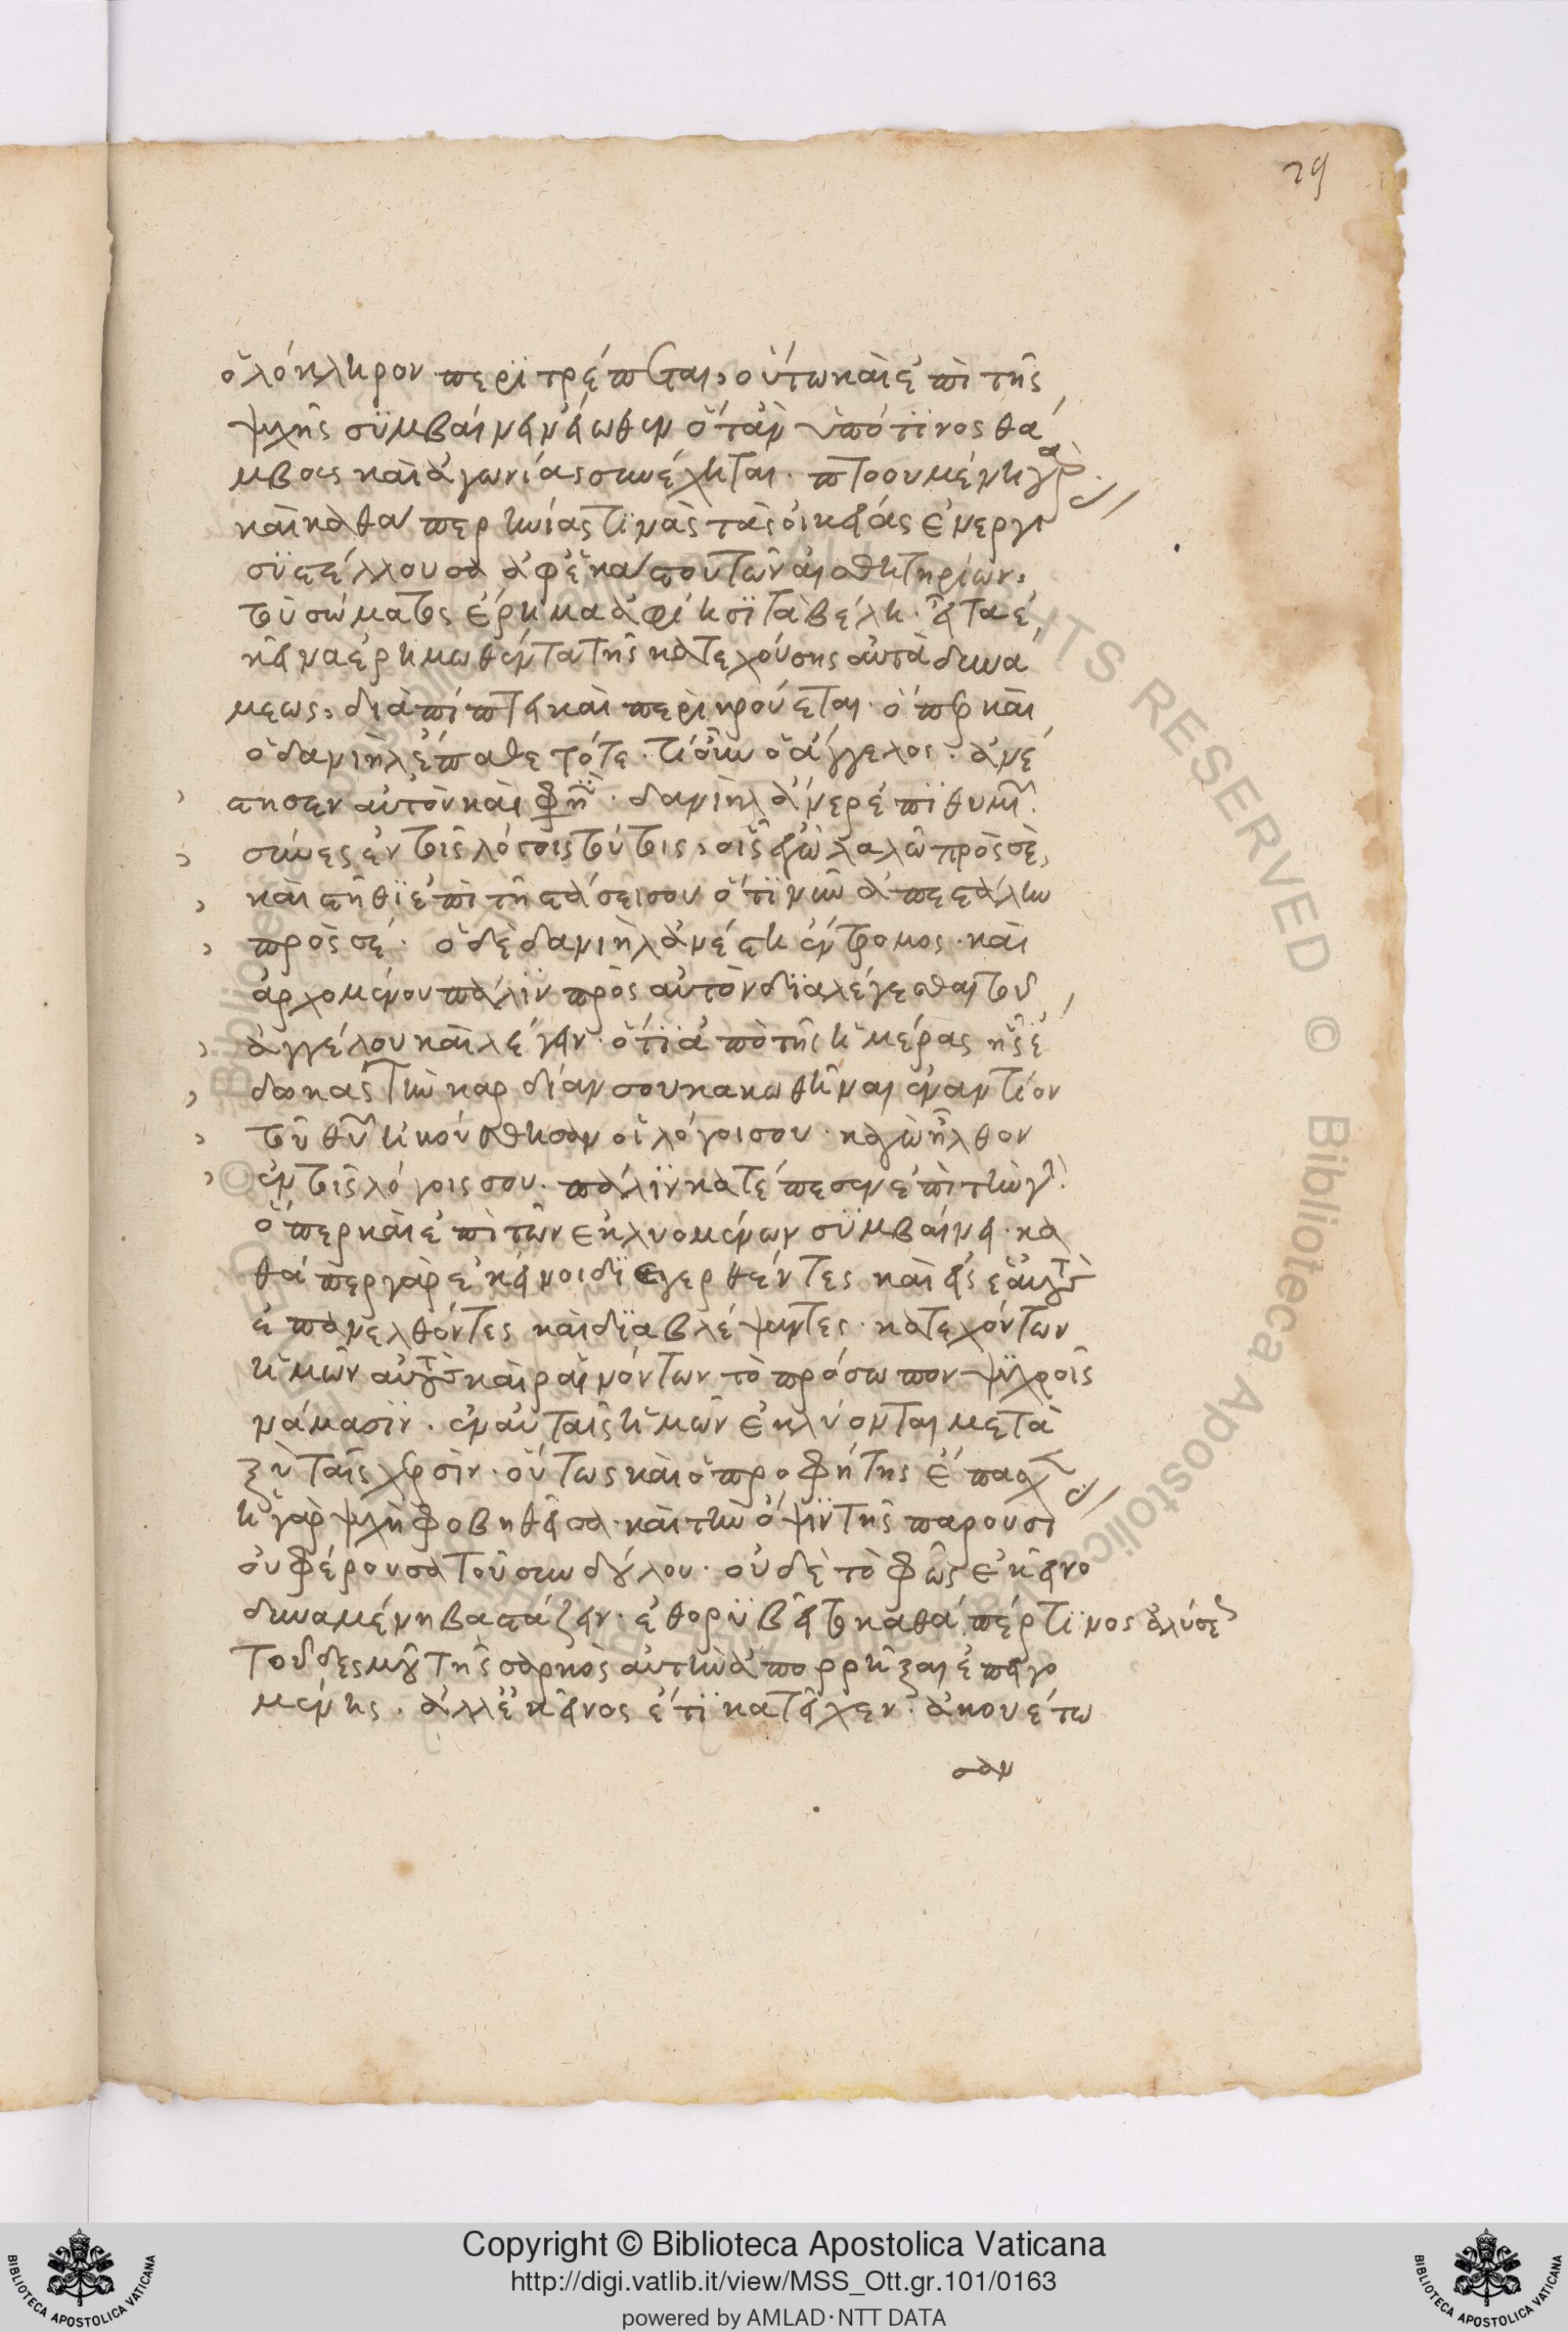 29
ὁλόκληρον περιτρέπεται, οὕτω καὶ ἐπὶ τῆς
ψυχῆς συμβαίνειν εἴωθεν ὅταν ὑπό τινος θά
μβους καὶ ἀγωνίας συνέχηται. πτοουμένη γὰρ
καὶ καθάπερ ἡνίας τινὰς τὰς οἰκείας ἐνεργεί
συστέλλουσα ἀφ' ἑκάστου τῶν αἰσθητηρίων,
τοῦ σώματος ἔρημα ἀφίησι τὰ βέλη. εἶτα ἐ
κεῖνα ἐρημωθέντα τῆς κατεχούσης αὐτὰ δυνά
μεως, διαπίπτει καὶ περικρούεται. ὅπερ καὶ
ὁ δανιὴλ ἔπαθε τότε. τί οὖν ὁ ἄγγελος. ἀνέ
στησεν αὐτὸν καὶ φησὶ. δανιὴλ ἀνὲρ ἐπιθυμιῶν
σύνες ἐν τοῖς λόγοις τούτοις, οἷς ἐγὼ λαλῶ πρὸς σὲ,
καὶ στῆθι ἐπὶ τῇ στάσει σου ὅτι νῦν ἀπεστάλην
πρὸς σέ. ὁ δὲ δανιὴλ ἀνέστη ἔντρομος. καὶ
ἀρχομένου πάλιν πρὸς αὐτὸν διαλέγεσθαι τοῦ
ἀγγέλου καὶ λέγειν. ὅτι ἀπὸ τῆς ἡμέρας ἧς ἔ
δωκας τὴν καρδίαν σου κακωθῆναι ἐναντίον
τοῦ θυ ἠκούσθησαν οἱ λόγοι σου. καγὼ ἦλθον
ἐν τοῖς λόγοις σου. πάλιν κατέπεσεν ἐπὶ τὴν γῆν.
ὅπερ καὶ ἐπὶ τῶν ἐκλυομένων συμβαίνει. κα
θάπερ γὰρ ἐκεῖνοι διεγερθέντες καὶ εἰς ἑαυτοὺς
ἐπανελθόντες καὶ διαβλέψαντες. κατεχόντων
ἡμῶν αὐτοὺς καὶ ραινόντων τὸ πρόσωπον ψυχροῖς
νάμασιν. ἐν αὐταῖς ἡμῶν ἐκλύονται μετα
ξὺ ταῖς χερσὶν. οὕτως καὶ ὁ προφήτης ἔπασχε
ἡ γὰρ ψυχὴ φοβηθεῖσα. καὶ τὴν ὄψιν τῆς παρουσί
οὐ φέρουσα τοῦ συνδούλου. οὐδὲ τὸ φῶς ἐκεῖνο
δυναμένη βαστάζειν. ἐθορυβεῖτο καθάπέρ τινος ἁλύσεως
τοῦ δεσμοῦ τῆς σαρκὸς αὐτὴν ἀπορρῆξαι ἐπειγο
μένης. ἀλλ' ἐκεῖνος ἔτι κατεῖχεν. ἀκουέτω
σαν